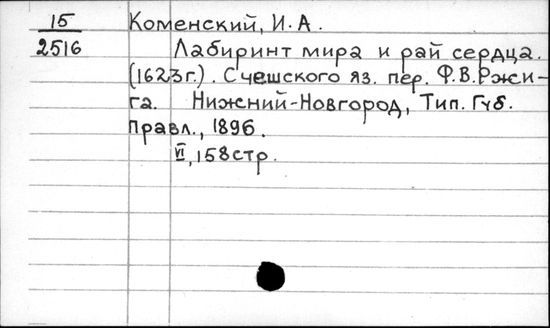 15 Коменский, И. А.
2516 Лабиринт мира и рай сердца.
(1623г.). С чешского яз. пер. Ф.В.Ржи-
га. Нижний-Новгород, Тип. Губ.
Правл., 1896.
VI, 158стр.